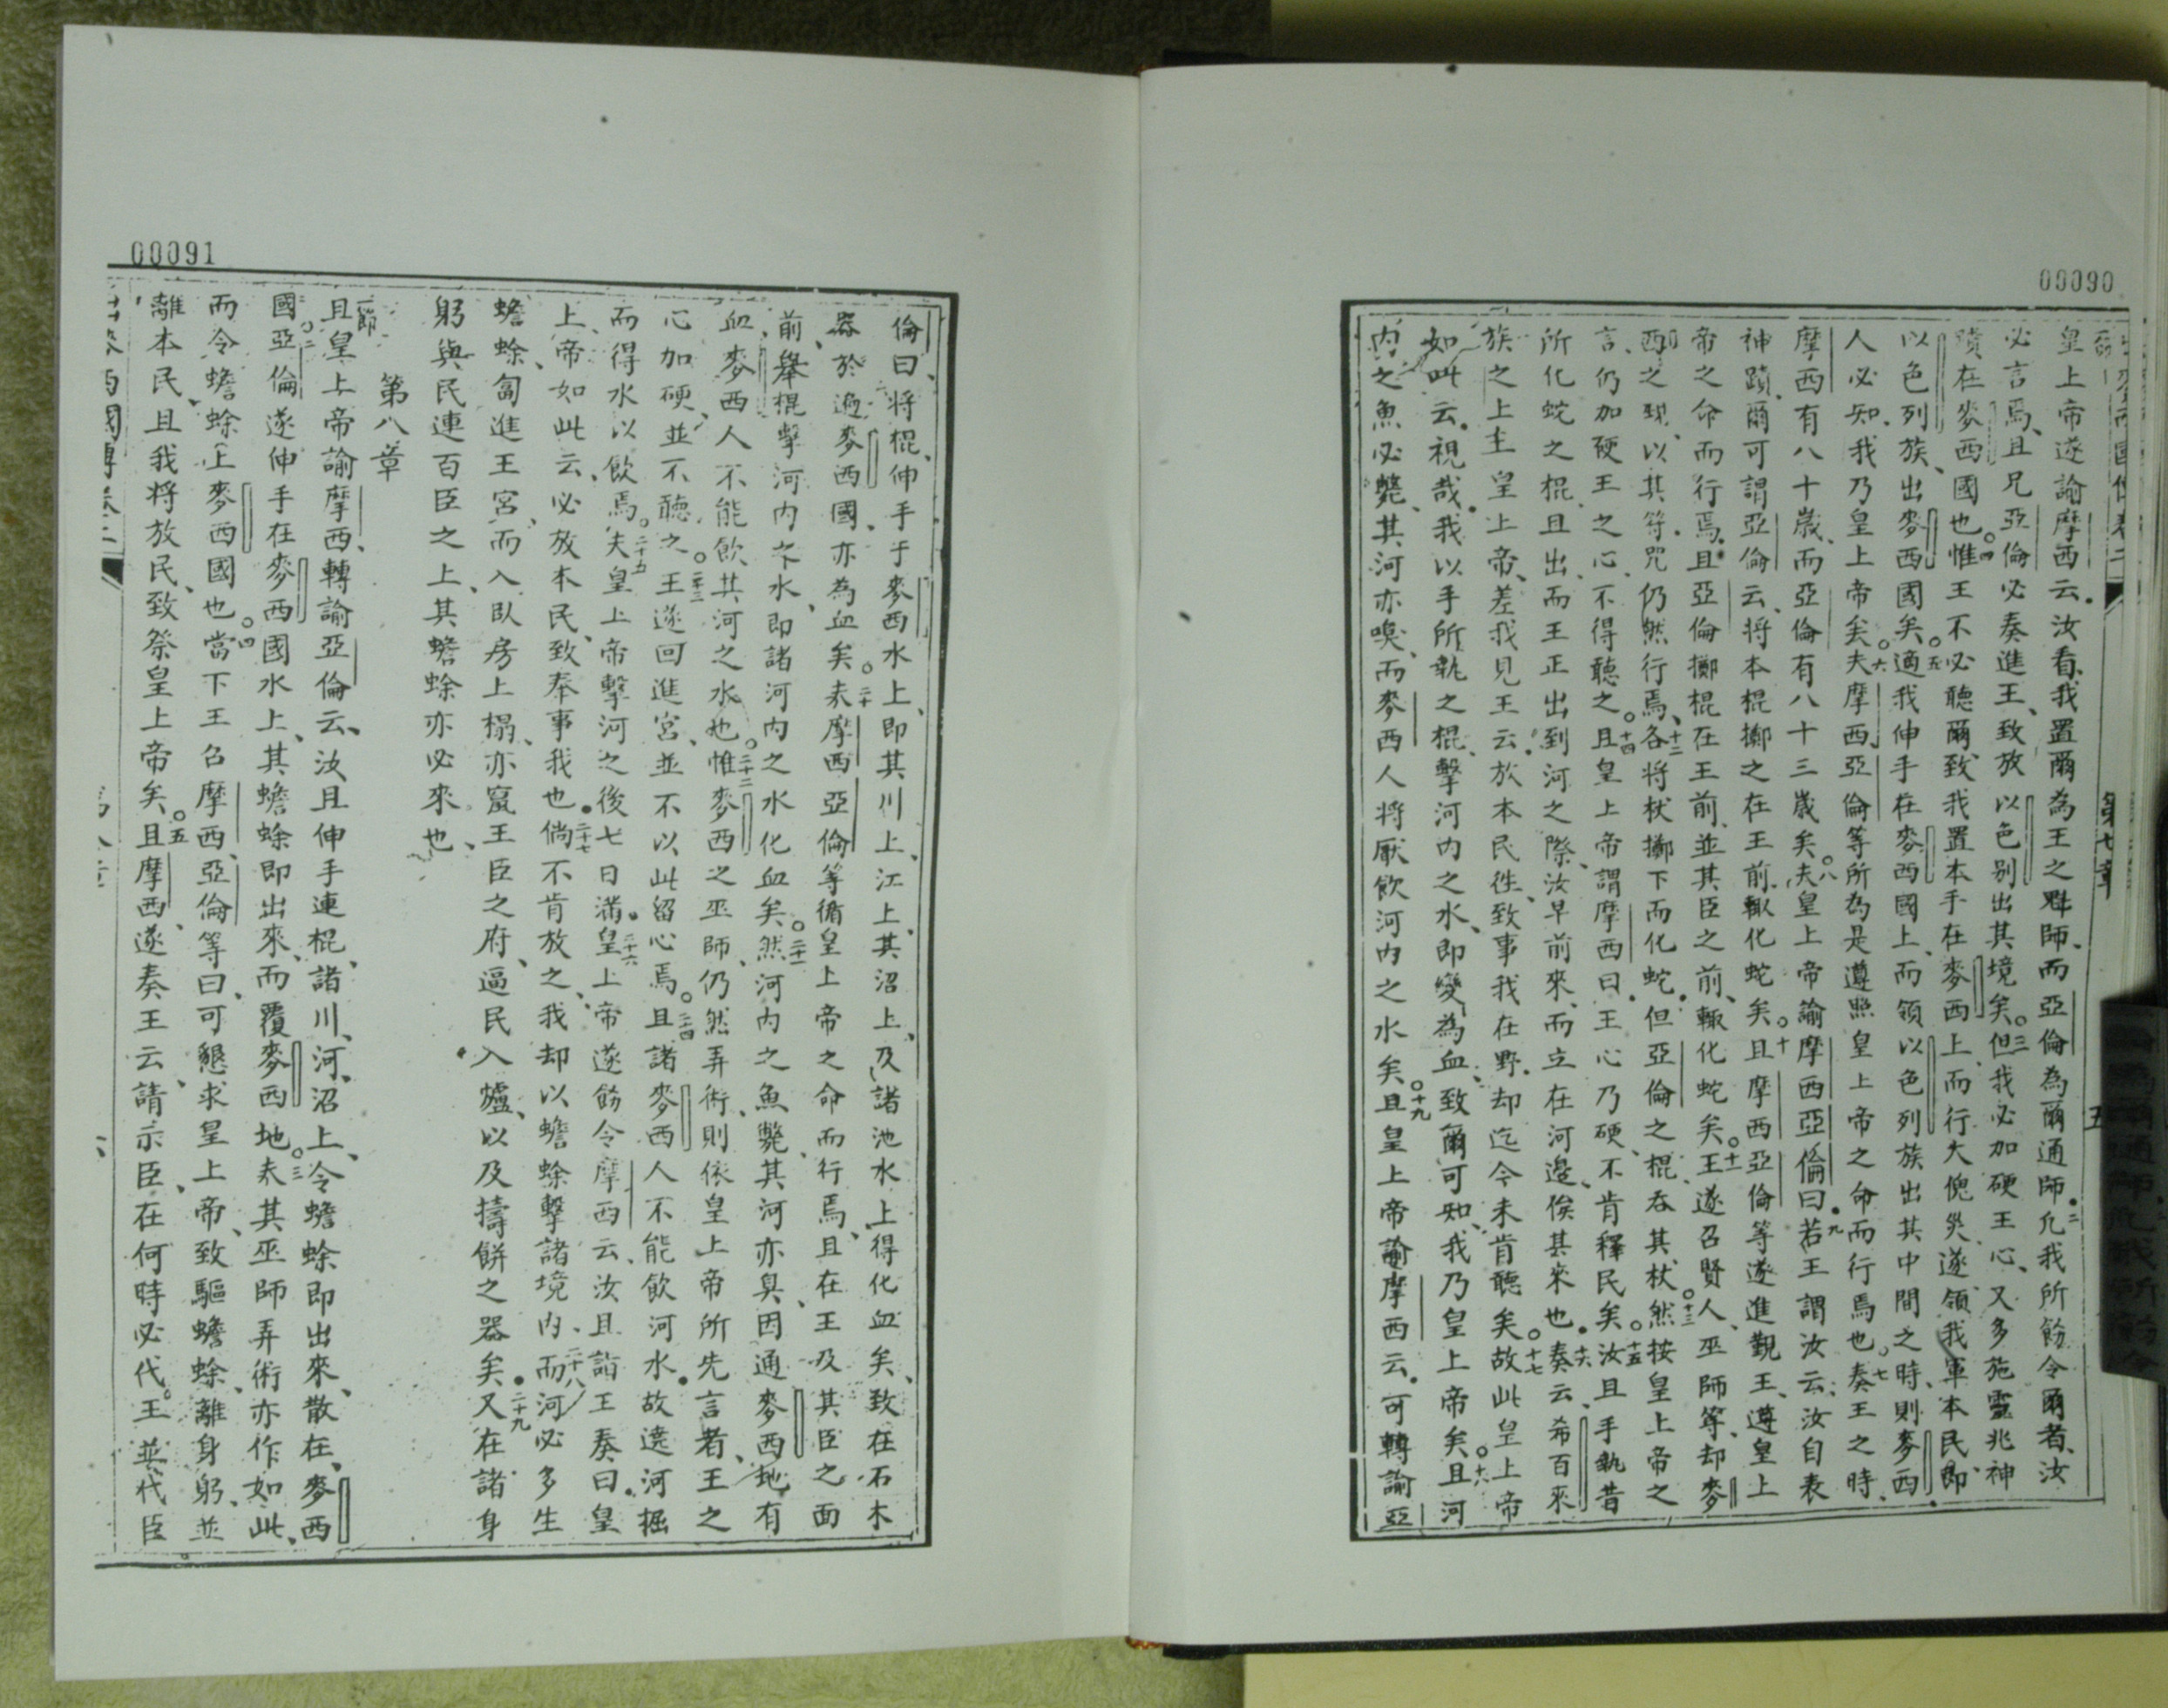 00090
第七章
五
皇上帝遂諭摩西云汝看我置爾為王之聖師而亞倫為爾通師二允我所飭令爾者汝
必言焉且兄亞倫必奏進王致放以色列出其境矣三但我必加硬王心又多施靈兆神
蹟在麥西國也四惟王不必聽爾致我置本手在麥西上而行大傀災遂領我軍本民即
以色列族出麥西國矣五適我伸手在麥西國上而領以色列族出其中間之時則麥西
人必知我乃皇上帝矣六夫摩西亞倫等所為是遵照皇上帝之命而行焉也七奏王之時
摩西有八十歲而亞倫有八十三歲矣八夫皇上帝諭摩西亞倫曰九若王謂汝云汝自表
神蹟爾可謂亞倫云將本棍擲之在王前輙化蛇矣十且摩西亞倫等遂進覲王遵皇上
帝之命而行焉且亞倫擲棍在王前並其臣之前輙化蛇矣十一王遂召賢人巫師等却麥
西之覡以其等咒仍然行焉十二各將杖擲下而化蛇但亞倫之棍吞其杖十三然按皇上帝之
言仍加硬王之心不得聽之十四且皇上帝謂摩西曰王心乃硬不肯釋民矣十五汝且手執昔
所化蛇之棍且出而王正出到河之際汝早前來而立在河邊俟其來也十六奏云希百來
族之上主皇上帝差我見王云放本民徃致事我在野却迄今未肯聽矣十七故此皇上帝
如此云視哉我以手所執之棍擊河內之水即變為血致爾可知我乃皇上帝矣十八且河
內之魚必斃其河亦嗅而麥西人將厭飲河內之水矣十九且皇上帝諭摩西云可轉諭亞
00091
倫曰將棍伸手于麥西水上即其川上江上其沼上及諸池水上得化血矣致在石木
器於遍麥西國亦為血矣二十夫摩西亞倫等循皇上帝之命而行焉且在王及其臣之面
前舉棍擊河內之水即諸河內之水化血矣二十一然河內之魚斃其河亦臭因通麥西地有
血麥西人不能飲其河之水也二十二惟麥西之巫師仍然弄術則依皇上帝所先言者王之
心加硬並不聽之二十三王遂回進宮並不以此留心焉二十四且諸麥西人不能飲河水故遶河掘
而得水以飲焉二十五夫皇上帝擊河之後七日滿二十六皇上帝遂飭令摩西云汝且詣王奏曰皇
上帝如此云必放本民致奉事我也二十七倘不肯放之我却以蟾蜍擊諸境內二十八而河必多生
蟾蜍匐進王宮而入臥房上榻亦窺王臣之府逼民入爐以及擣餅之器矣二十九又在諸身
躬與民連百臣之上其蟾蜍亦必來也
第八章
一節且皇上帝諭摩西轉諭亞倫云汝且伸手連棍諸川河沼上令蟾蜍即出來散在麥西
國二亞倫遂伸手在麥西國水上其蟾蜍即出來而覆麥西地三夫其巫師弄術亦作如此
而令蟾蜍上麥西國也四當下王召摩西亞倫等曰可懇求皇上帝致驅蟾蜍離身躬並
離本民且我將放民致祭皇上帝矣五且摩西遂奏王云請示臣在何時必代王並代臣